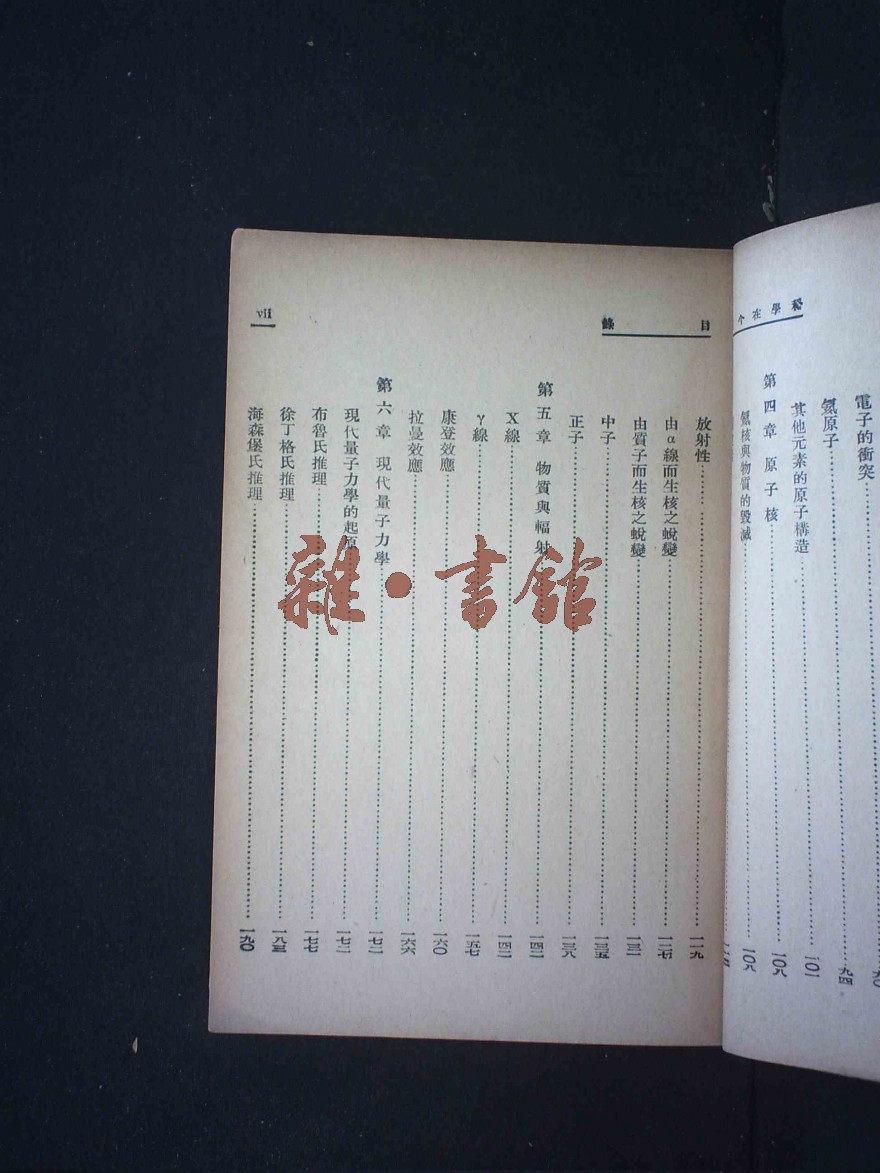 科學在今
電子的衝突……九〇
氦原子……九四
其他元素的原子構造……一〇一
第四章 原子核……一〇八
氦核與物質的毀滅……一〇八
目錄
vii
放射性……一一九
由α線而生核之蛻變……一二七
由質子而生核之蛻變……一三一
中子……一三五
正子……一三八
第五章 物質與輻射……一四二
X線……一四二
γ線……一五七
康登效應……一六〇
拉曼效應……一六六
第六章 現代量子力學……一七二
現代量子力學的起原……一七二
布魯氏推理……一七七
徐丁格氏推理……一八三
海森堡氏推理……一九〇
雜·書館